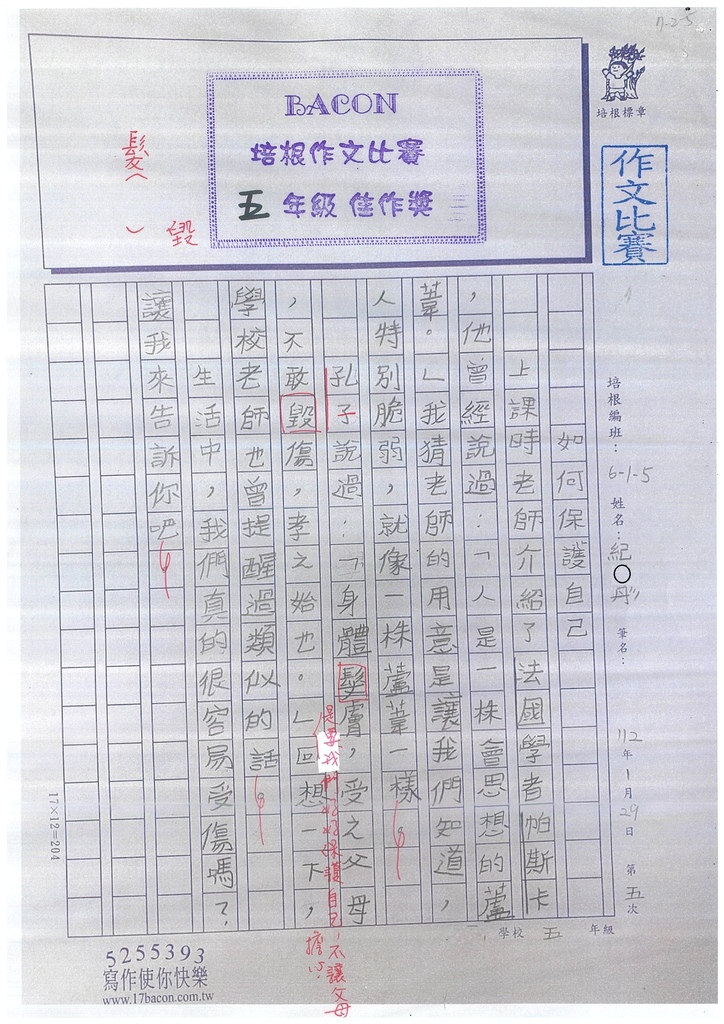 11-2-5
培根標章
作文比賽
BACON
培根作文比賽
五年級 佳作獎
髮（
）毀
培根編班：6-1-5 姓名：紀○彤 筆名： 112年1月29日 第五次
學校 五 年級
如何保護自己
上課時老師介紹了法國學者帕斯卡
，他曾經說過：「人是一株會思想的蘆
葦。」我猜老師的用意是讓我們知道，
人特別脆弱，就像一株蘆葦一樣
孔子說過：「身體髮膚，受之父母
是要我們好好保護自己，不讓父母
擔心
，不敢毀傷，孝之始也。」回想一下，
學校老師也曾提醒過類似的話
生活中，我們真的很容易受傷嗎？
讓我來告訴你吧
17×12=204
5255393
寫作使你快樂
www.17bacon.com.tw